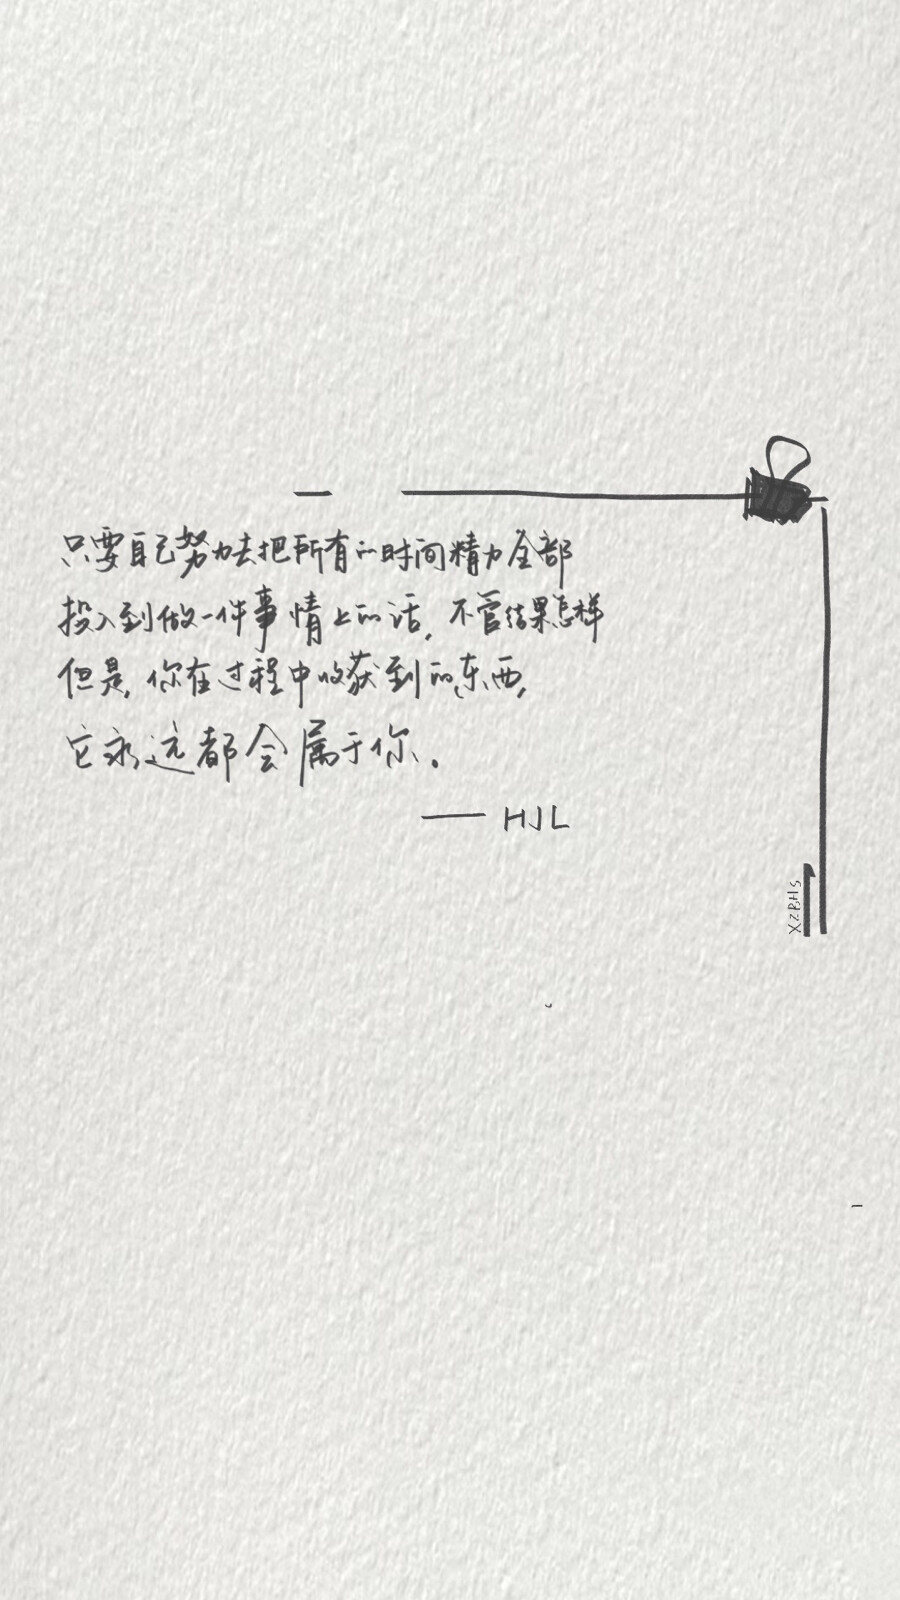 只要自己努力去把所有的时间精力全部
投入到做一件事情上的话,不管结果怎样
但是,你在过程中收获到的东西,
它永远都会属于你。
—— HJL
XZBHS